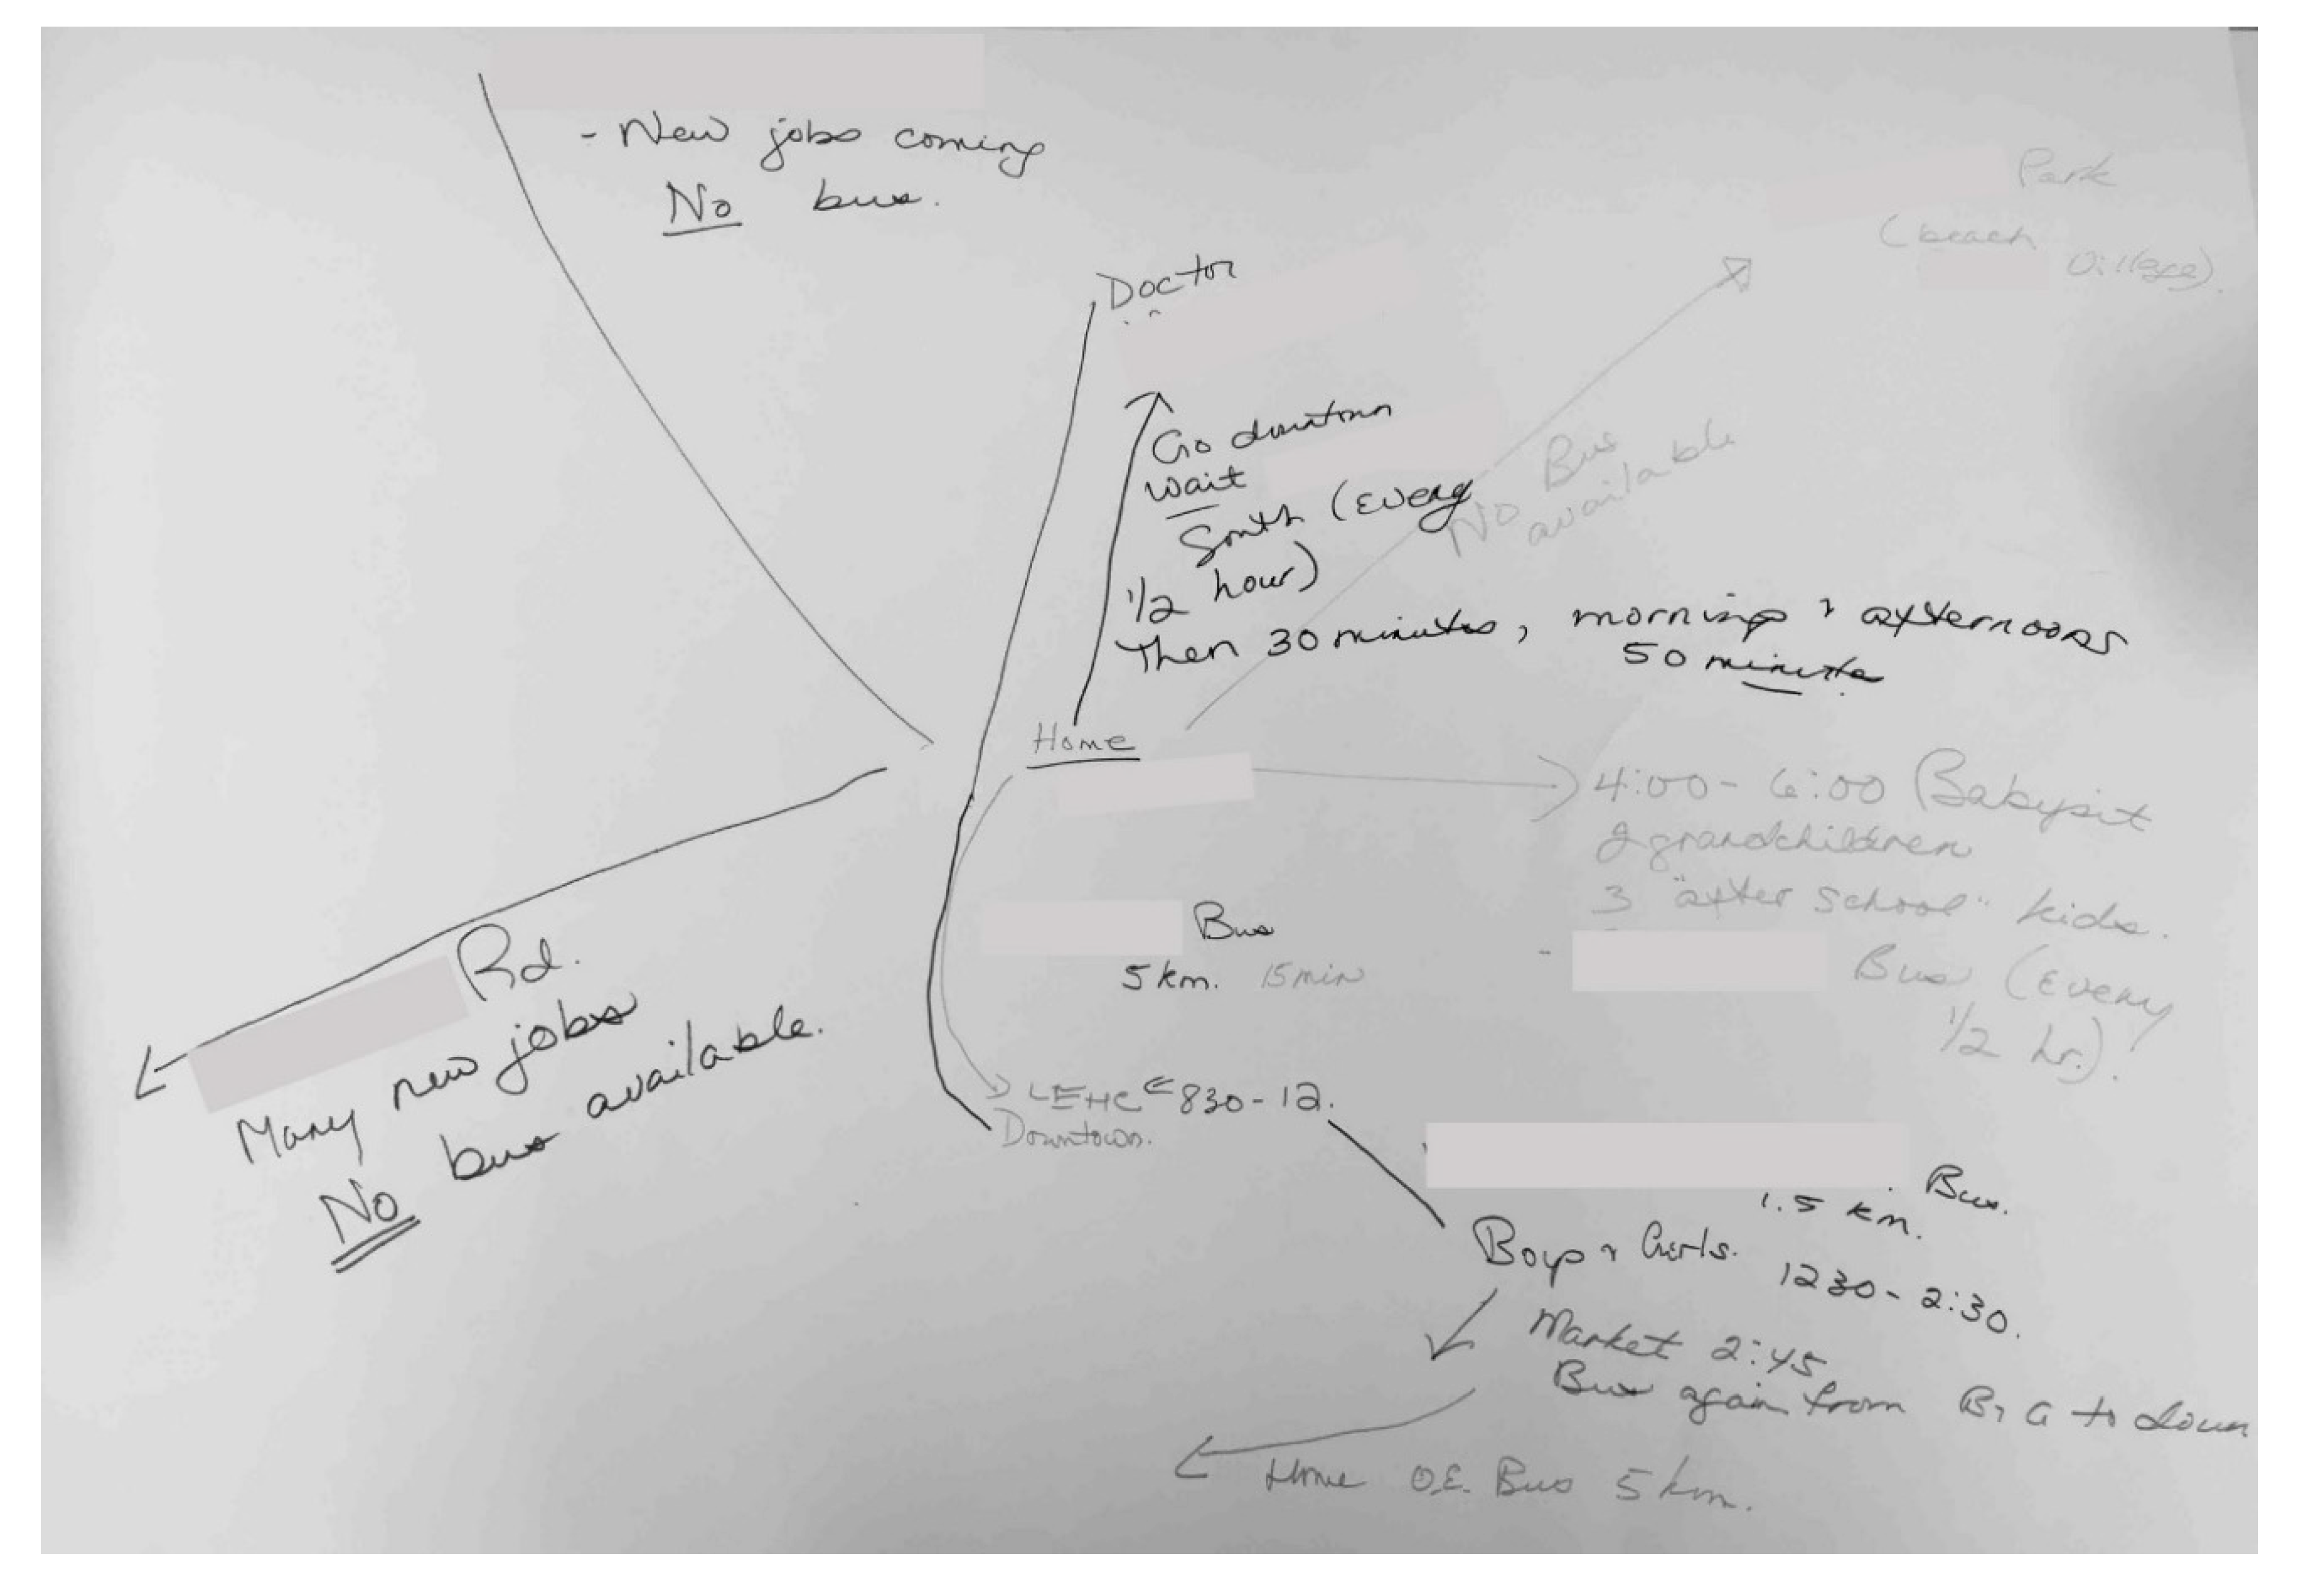 - New jobs coming
No bus.
Park
(beach
Village).
Doctor
Go downtown
wait
South (every
1/2 hour)
Then 30 minutes, mornings + afternoons
50 minute
No Bus
available
Home
4:00 - 6:00 Babysit
2 grandchildren
3 "after school" kids.
- Bus (every
1/2 hr.)
Bus
5 km. 15 min
Rd.
Many new jobs
No bus available.
LEHC 830-12.
Downtown.
Bus.
1.5 km.
Boys + Girls. 1230 - 2:30.
Market 2:45
Bus again from B + G to down
Home O.E. Bus 5 km.